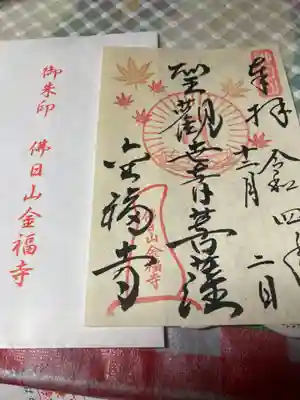 奉拝
令和四年
十二月二日
聖観世音菩薩
金福寺
佛日山金福寺
御朱印
佛日山金福寺